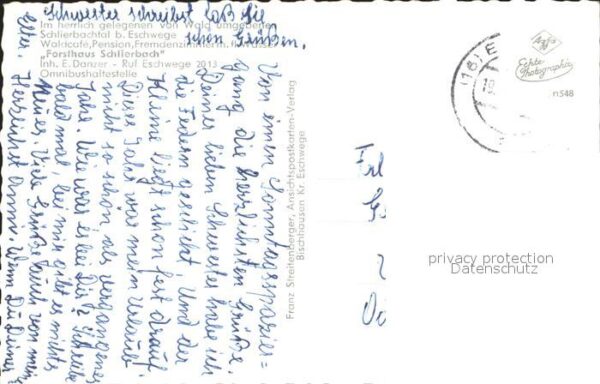 Im herrlich gelegenen von Wald umgebenen
Schlierbachtal b. Eschwege
Waldcafé, Pension, Fremdenzimmer
„Forsthaus Schlierbach"
Inh. E. Danzer - Ruf Eschwege 2013
Omnibushaltestelle
Von einem Sonntagsspazier=
gang die herzlichsten Grüße.
Deiner lieben Schwester habe ich
die Federn geschickt und der
Kleine liegt schon fest drauf.
Dieses Jahr war mein Urlaub
nicht so schön als vergangenes
Jahr. Wie war es bei Dir? Schreibe
bald mal, bei mir gibt es nichts
Neues. Viele Grüße auch von mein
Eltern. Herzlichst Wenn Du Deiner
Schwester schreibst laß sie
schön Grüßen.
Franz Streitenberger, Ansichtspostkarten-Verlag
Bischhausen Kr. Eschwege
Agfa
Echte
Photographie
n548
(16) E
privacy protection
Datenschutz